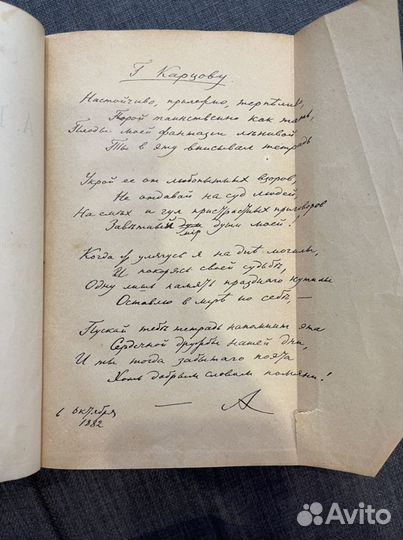 Г Карцову
Настойчиво, прилежно, терпеливо,
Порой таинственно как тать,
Плоды моей фантазии лѣнивой
Ты в эту вписывал тетрадь
Укрой ее от любопытных взоров,
Не отдавай на суд людей
На смѣх и гул пристрастных приговоров
Завѣтный мір души моей!
Когда улягусь я на днѣ могилы,
И покорясь своей судьбѣ,
Одну лишь память праздного
Оставлю в мірѣ по себѣ,—
Пускай тебѣ тетрадь напомнит эта
Сердечной дружбы нашей дни,
И ты тогда забытаго поэта
Хоть добрым словом помяни!
— А
6 октября
1882
Avito